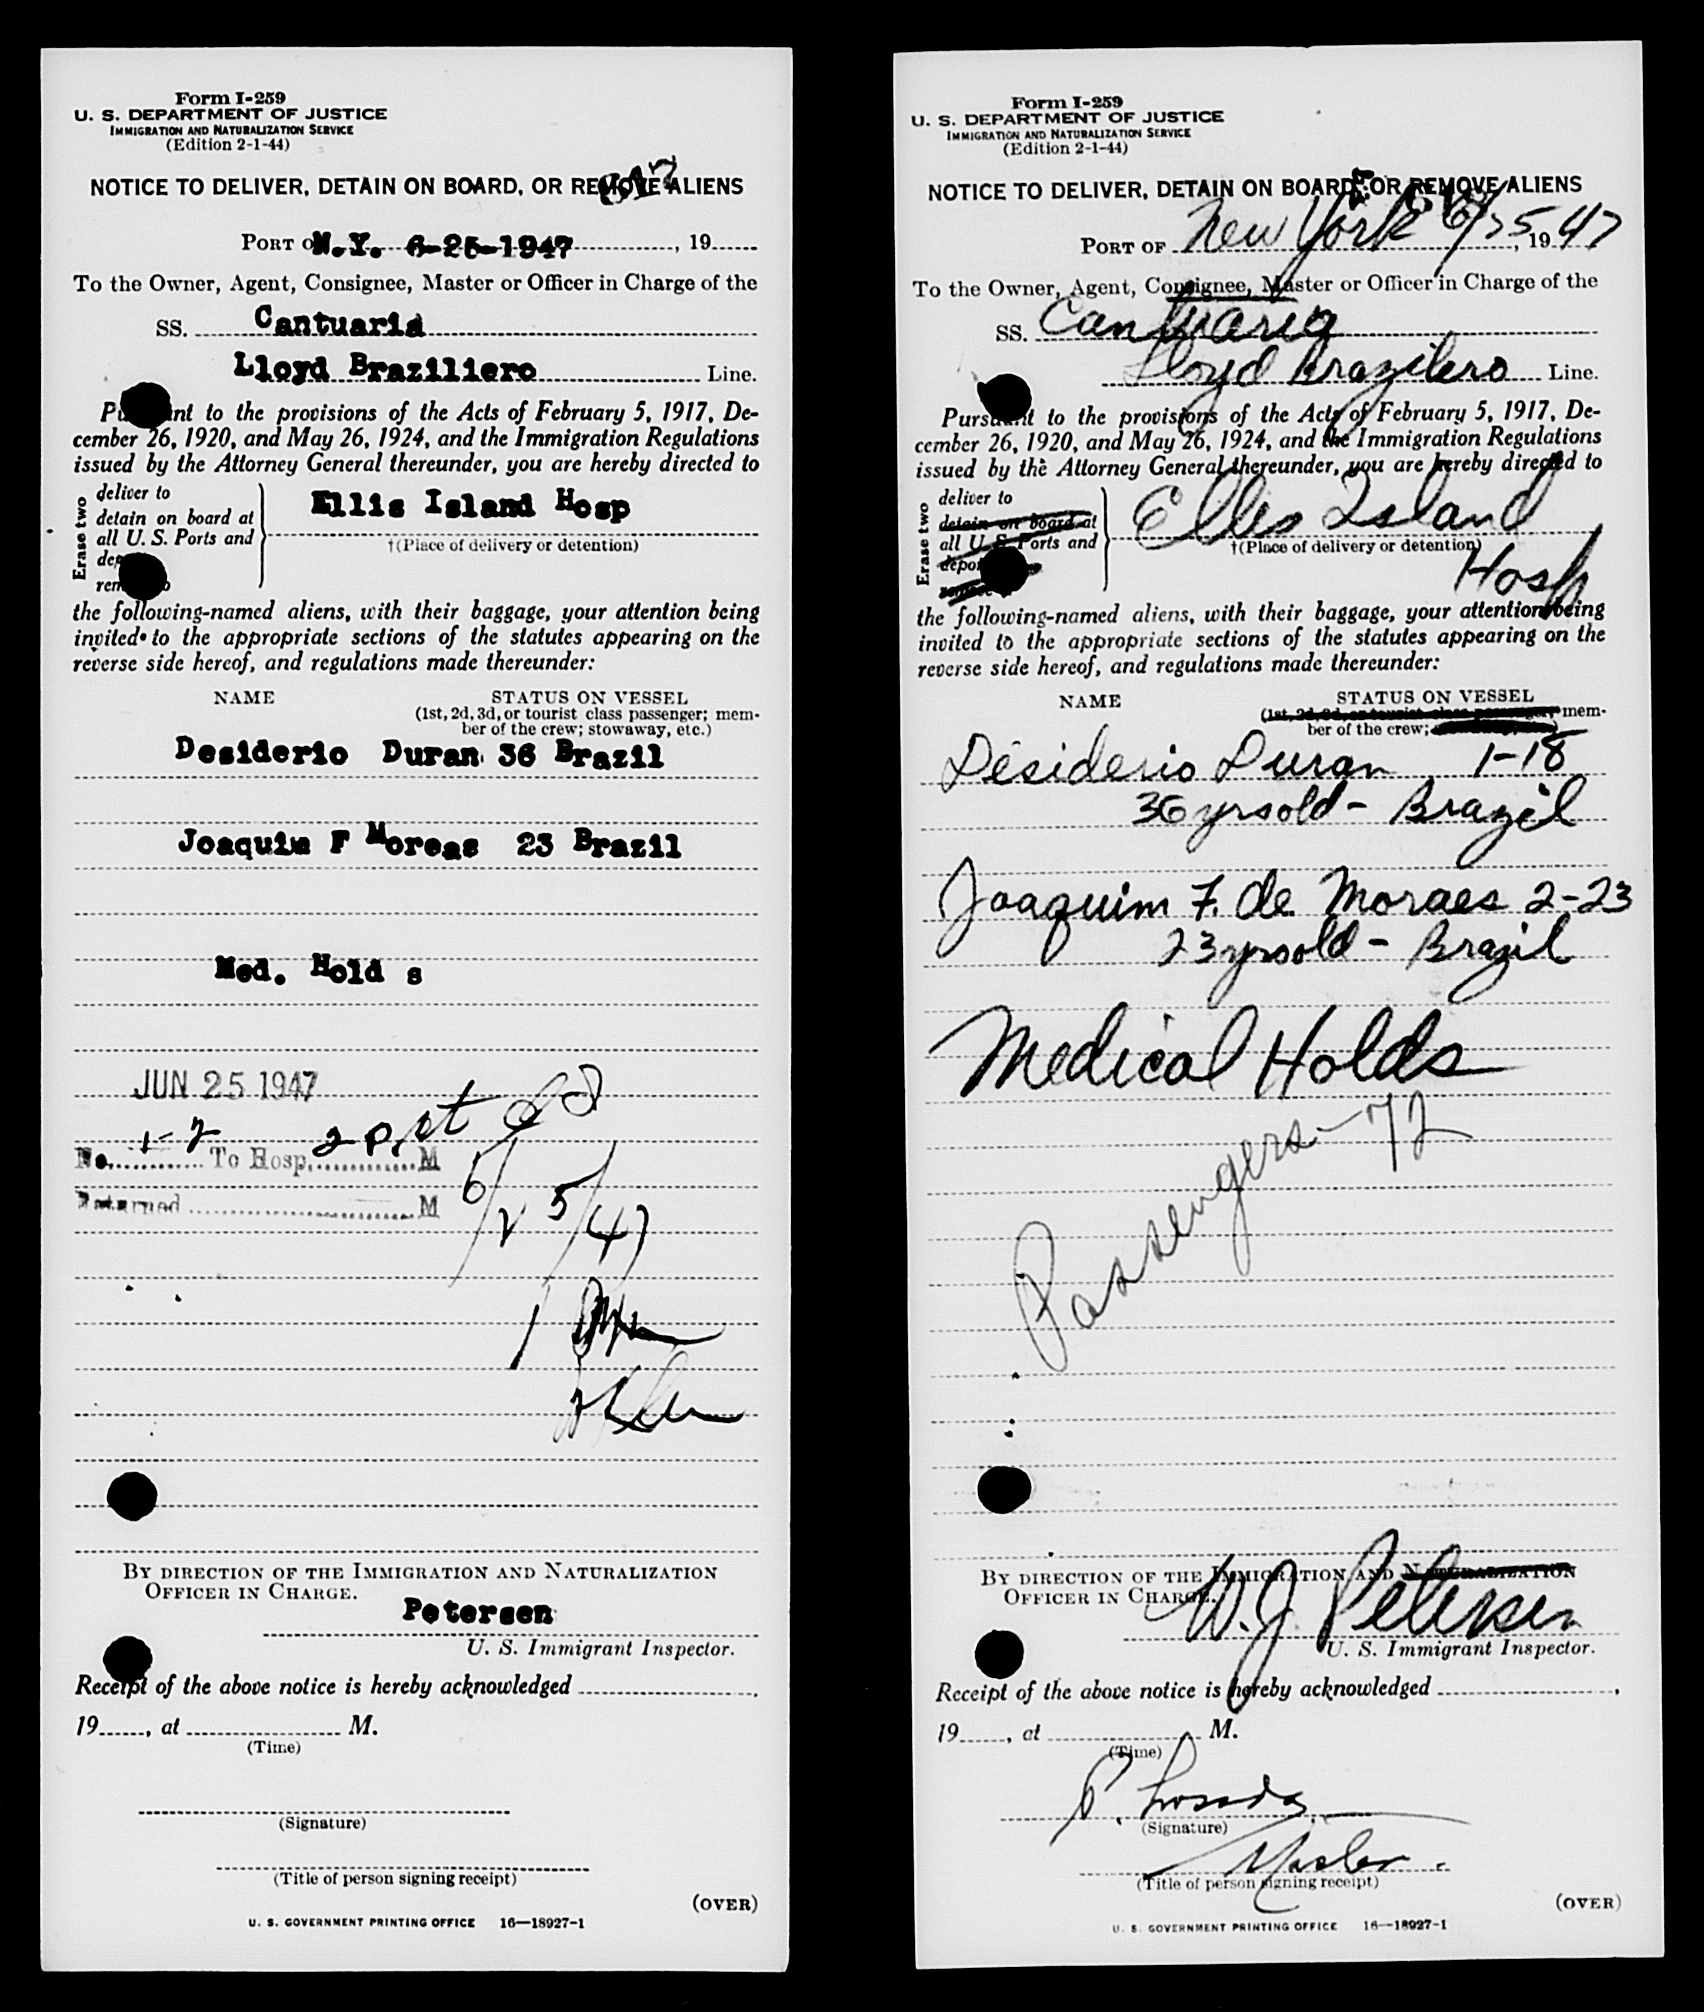 Form I-259
U. S. DEPARTMENT OF JUSTICE
IMMIGRATION AND NATURALIZATION SERVICE
(Edition 2-1-44)
NOTICE TO DELIVER, DETAIN ON BOARD, OR REMOVE ALIENS
PORT OF N.Y. 6-25-1947, 19
To the Owner, Agent, Consignee, Master or Officer in Charge of the
SS. Cantuaria
Lloyd Braziliero Line.
Pursuant to the provisions of the Acts of February 5, 1917, De-
cember 26, 1920, and May 26, 1924, and the Immigration Regulations
issued by the Attorney General thereunder, you are hereby directed to
Erase two
deliver to
detain on board at
all U. S. Ports and
Ellis Island Hosp
†(Place of delivery or detention)
the following-named aliens, with their baggage, your attention being
invited to the appropriate sections of the statutes appearing on the
reverse side hereof, and regulations made thereunder:
NAME STATUS ON VESSEL
(1st, 2d, 3d, or tourist class passenger; mem-
ber of the crew; stowaway, etc.)
Desiderio Duran 36 Brazil
Joaquim F Moreas 23 Brazil
Med. Hold s
JUN 25 1947
No. 1-2 To Hosp. 2 P M
Returned M
6/25/47
BY DIRECTION OF THE IMMIGRATION AND NATURALIZATION
OFFICER IN CHARGE.
Petersen
U. S. Immigrant Inspector.
Receipt of the above notice is hereby acknowledged
19, at M.
(Time)
(Signature)
(Title of person signing receipt)
(OVER)
U. S. GOVERNMENT PRINTING OFFICE 16—18927-1
Form I-259
U. S. DEPARTMENT OF JUSTICE
IMMIGRATION AND NATURALIZATION SERVICE
(Edition 2-1-44)
NOTICE TO DELIVER, DETAIN ON BOARD, OR REMOVE ALIENS
PORT OF New York 6/25, 1947
To the Owner, Agent, Consignee, Master or Officer in Charge of the
SS. Cantuaria
Lloyd Brazilero Line.
Pursuant to the provisions of the Acts of February 5, 1917, De-
cember 26, 1920, and May 26, 1924, and the Immigration Regulations
issued by the Attorney General thereunder, you are hereby directed to
Erase two
deliver to
detain on board at
all U. S. Ports and
Ellis Island
†(Place of delivery or detention)
Hosp
the following-named aliens, with their baggage, your attention being
invited to the appropriate sections of the statutes appearing on the
reverse side hereof, and regulations made thereunder:
NAME STATUS ON VESSEL
(1st, 2d, 3d, or tourist class passenger; mem-
ber of the crew;
Desiderio Duran 1-18
36 yrs old - Brazil
Joaquim F. de Moraes 2-23
23 yrs old - Brazil
Medical Holds
Passengers - 72
BY DIRECTION OF THE IMMIGRATION AND NATURALIZATION
OFFICER IN CHARGE.
W. J. Petersen
U. S. Immigrant Inspector.
Receipt of the above notice is hereby acknowledged
19, at M.
(Time)
(Signature)
Master.
(Title of person signing receipt)
(OVER)
U. S. GOVERNMENT PRINTING OFFICE 16—18927-1